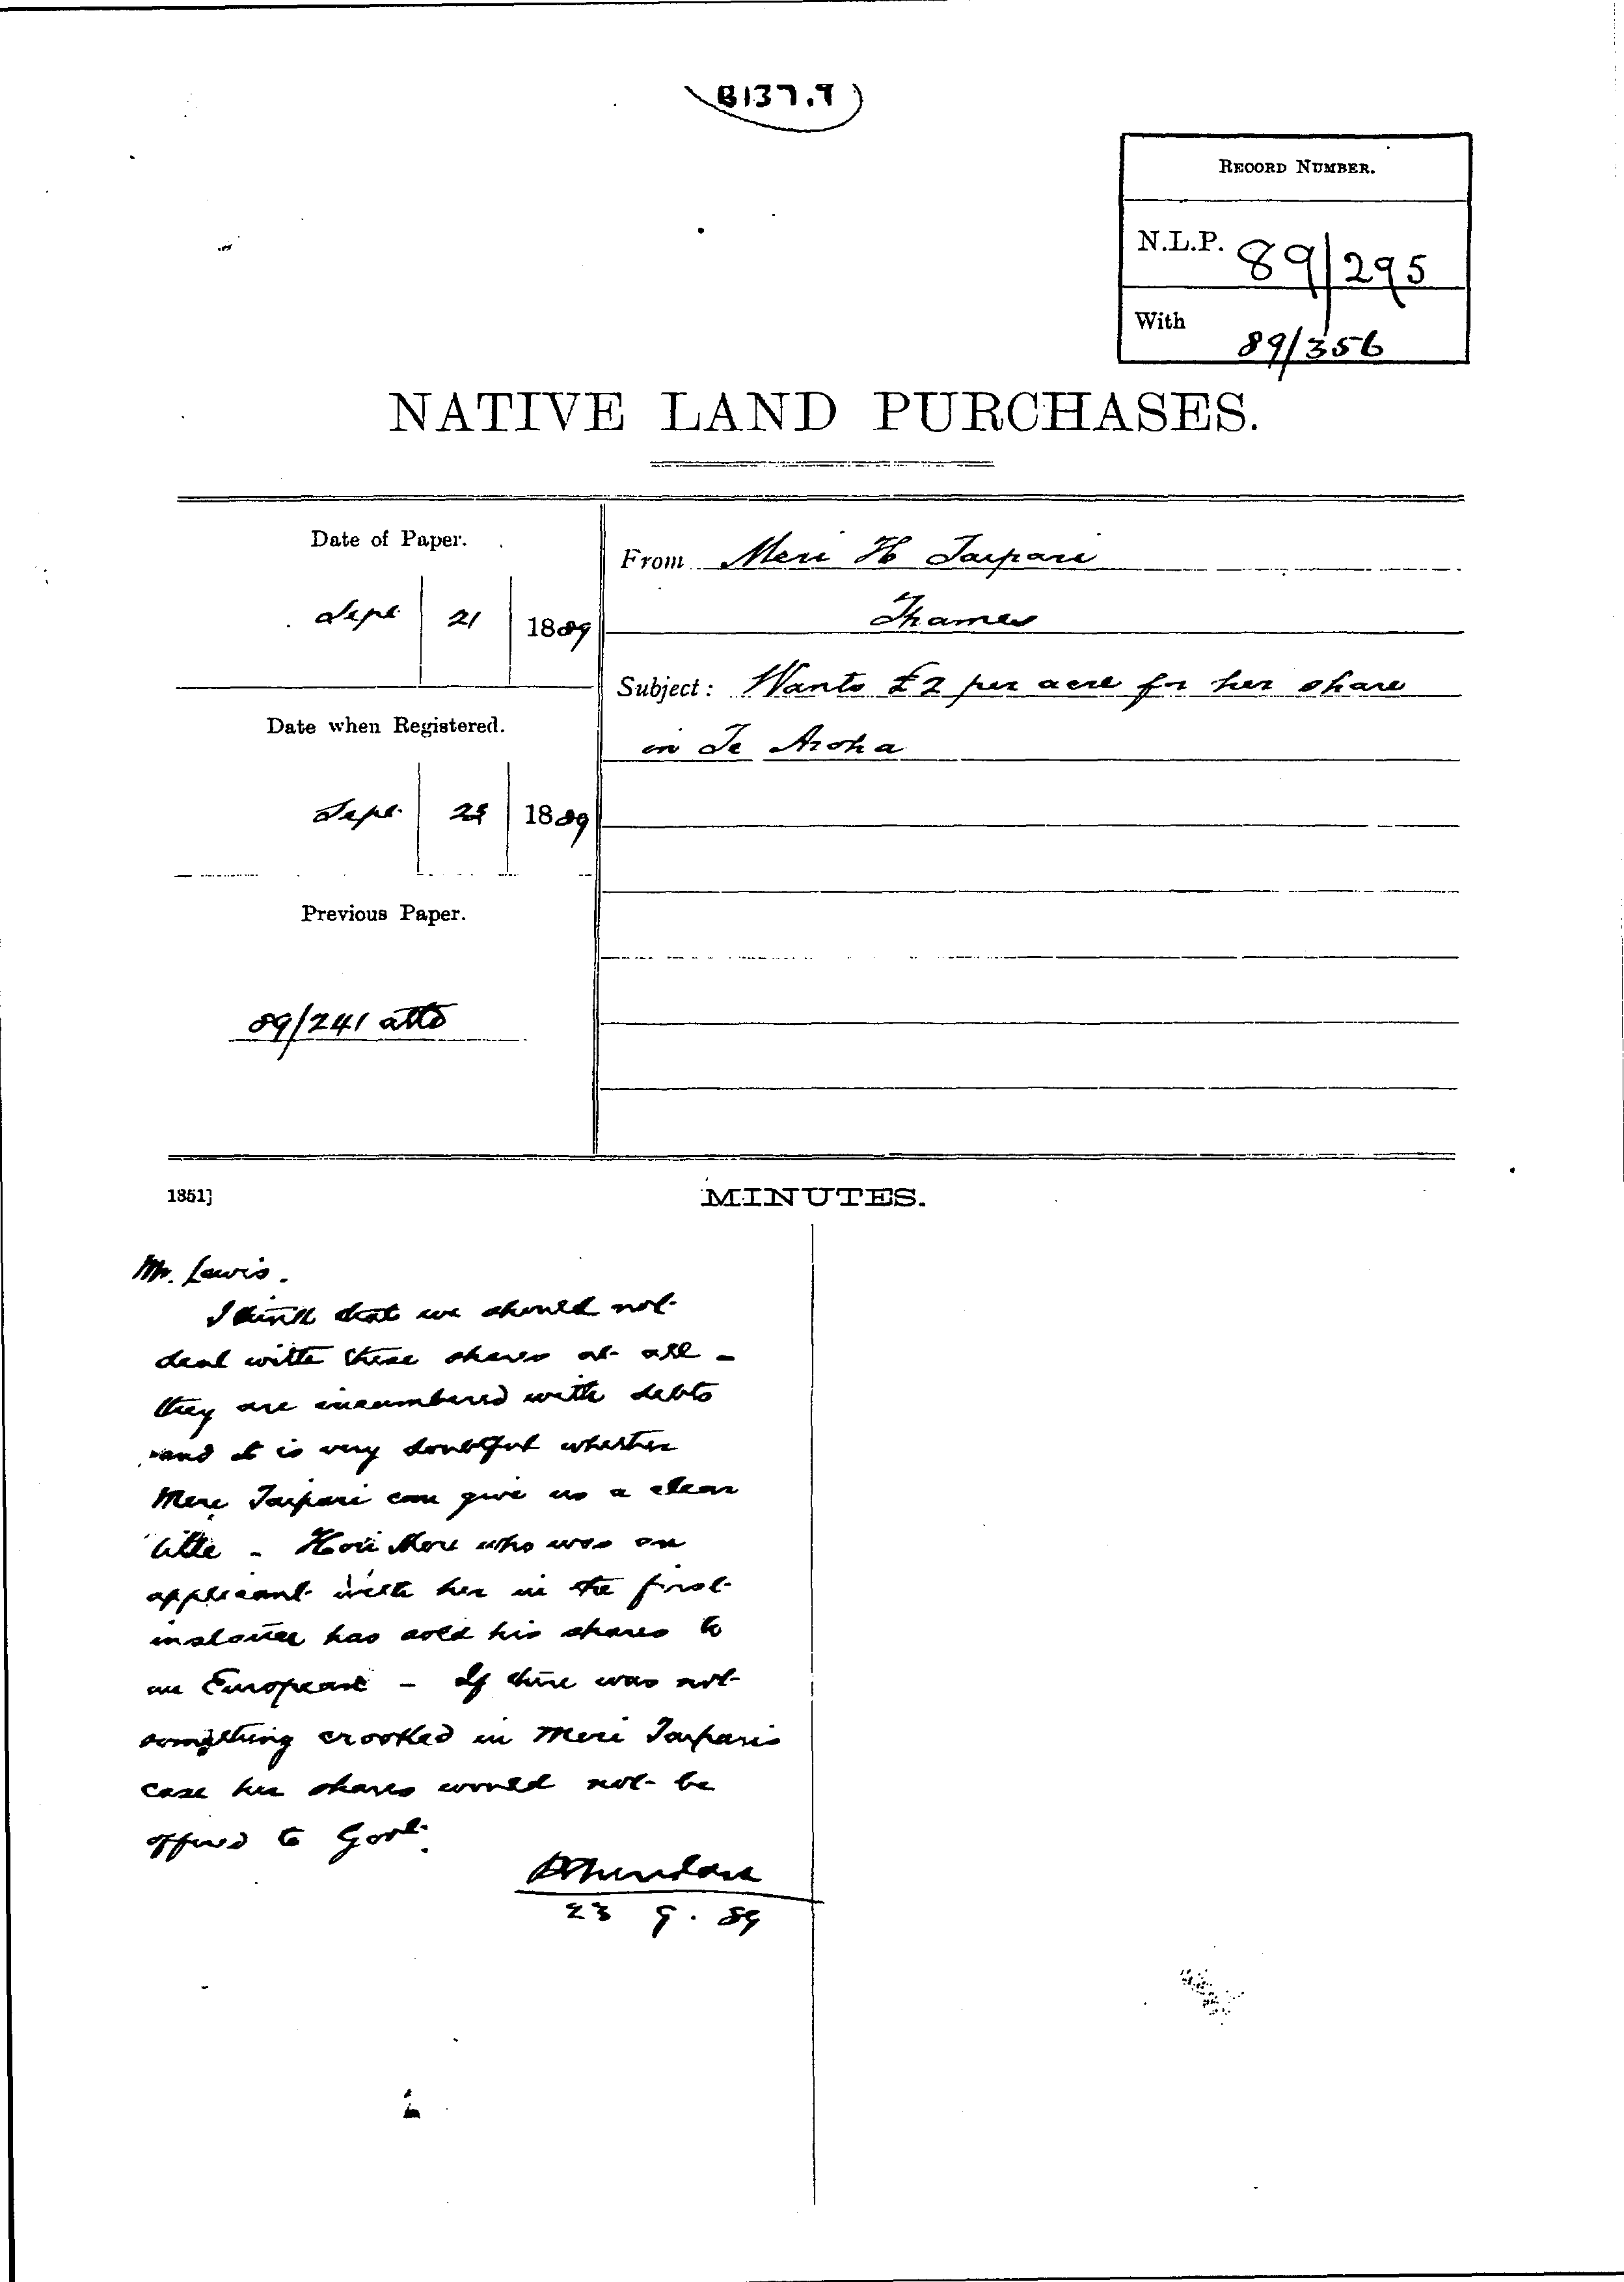 B137.9
RECORD NUMBER.
N.L.P. 89/295
With 89/356
NATIVE LAND PURCHASES.
Date of Paper.
Sept. 21 1889
From Meri H Taipari
Thames
Subject: Wants £2 per acre for her share
in Te Aroha
Date when Registered.
Sept. 23 1889
Previous Paper.
89/241 attd
1351]
MINUTES.
Mr. Lewis.
I think that we should not
deal with these shares at all –
they are incumbered with debts
and it is very doubtful whether
Mere Taipari can give us a clear
title – Hori More who was an
applicant with her in the first
instance has sold his shares to
an European – If there was not
something crooked in Meri Taiparis
case her shares would not be
offered to Govt.
23 9. 89